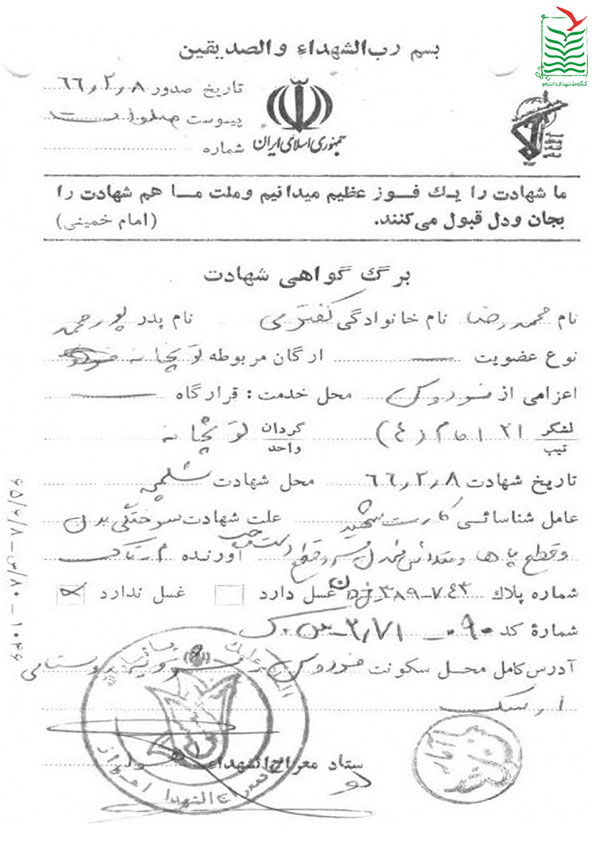 بسم رب الشهداء والصدیقین
تاریخ صدور ۶۶٫۲٫۸
پیوست
شماره
جمهوری اسلامی ایران
ما شهادت را یک فوز عظیم میدانیم وملت ما هم شهادت را
بجان ودل قبول می‌کنند. (امام خمینی)
برگ گواهی شهادت
نام محمدرضا نام خانوادگی کفتری نام پدر پورمحمد
نوع عضویت — ارگان مربوطه توپخانه
اعزامی از فردوس محل خدمت: قرارگاه —
لشگر تیپ ۲۱ امام رضا (ع) گردان واحد توپخانه
تاریخ شهادت ۶۶٫۲٫۸ محل شهادت شلمچه
عامل شناسائی کارت شهید علت شهادت سوختگی بدن
و قطع پاها و قطع دست چپ آورنده
شماره پلاک ۷۴۳-۳۸۹ غسل دارد غسل ندارد
شمارهٔ کد ۰۹۰-۳٫۷۱
آدرس کامل محل سکونت فردوس روستای
ارسک
ستاد معراج الشهداء
معراج الشهدا اهواز
۱۰۲۶-۸۰/س-۶۵/۶/۸